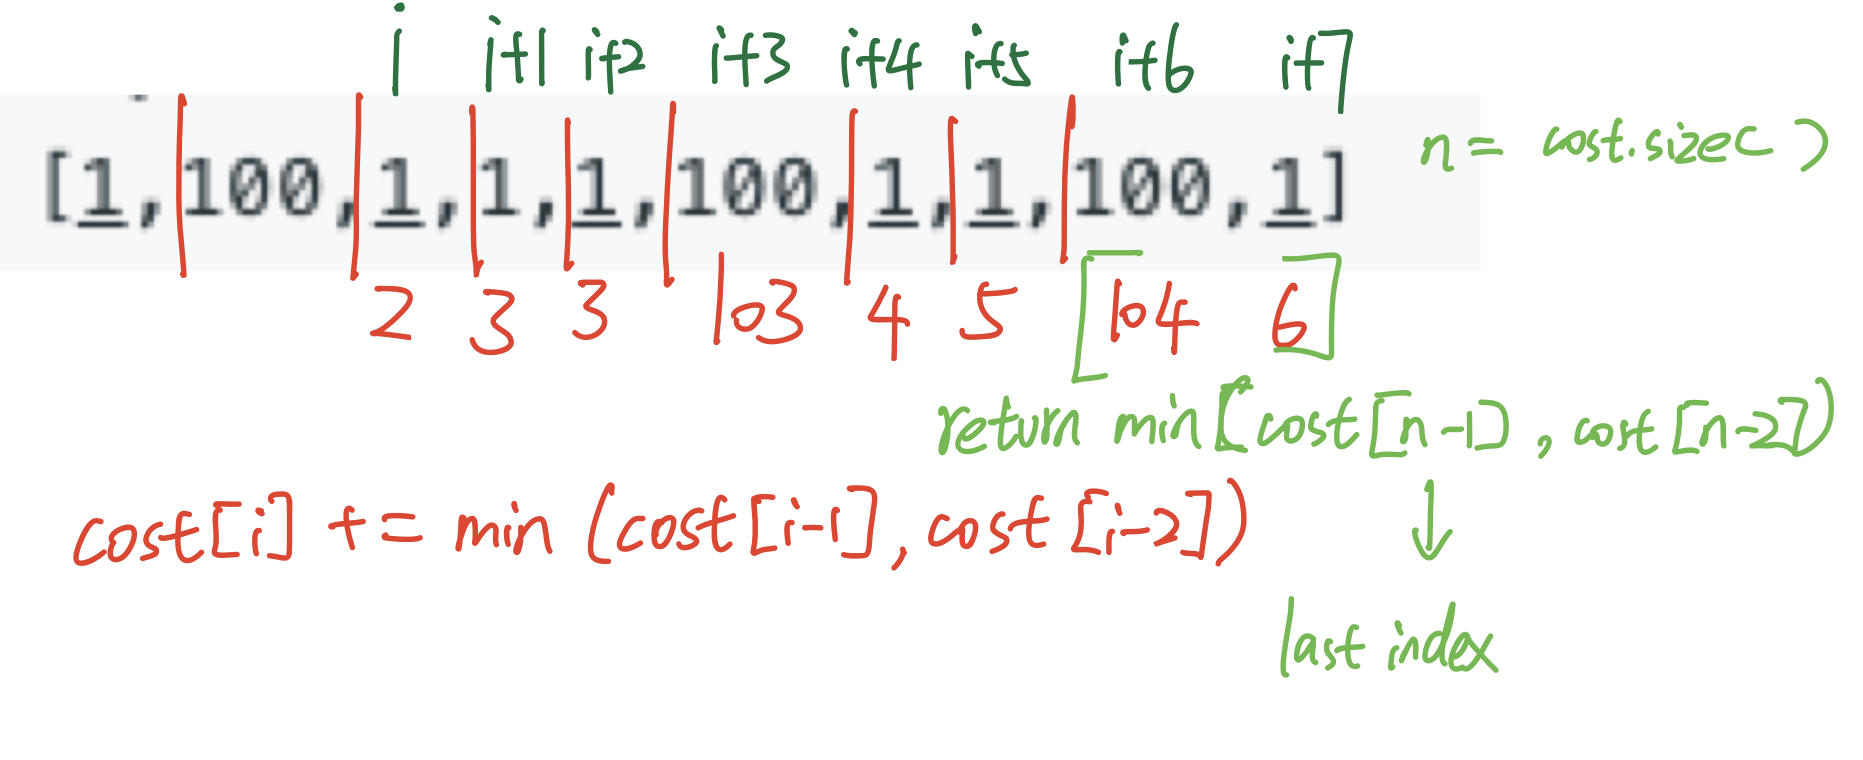 i i+1 i+2 i+3 i+4 i+5 i+6 i+7
[1,100,1,1,1,100,1,1,100,1]
n = cost.size( )
2 3 3 103 4 5 [104 6]
return min(cost[n-1], cost[n-2])
cost[i] += min (cost[i-1], cost[i-2])
last index